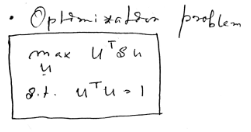 • Optimization problem
max u^T S u
u
s.t. u^T u = 1